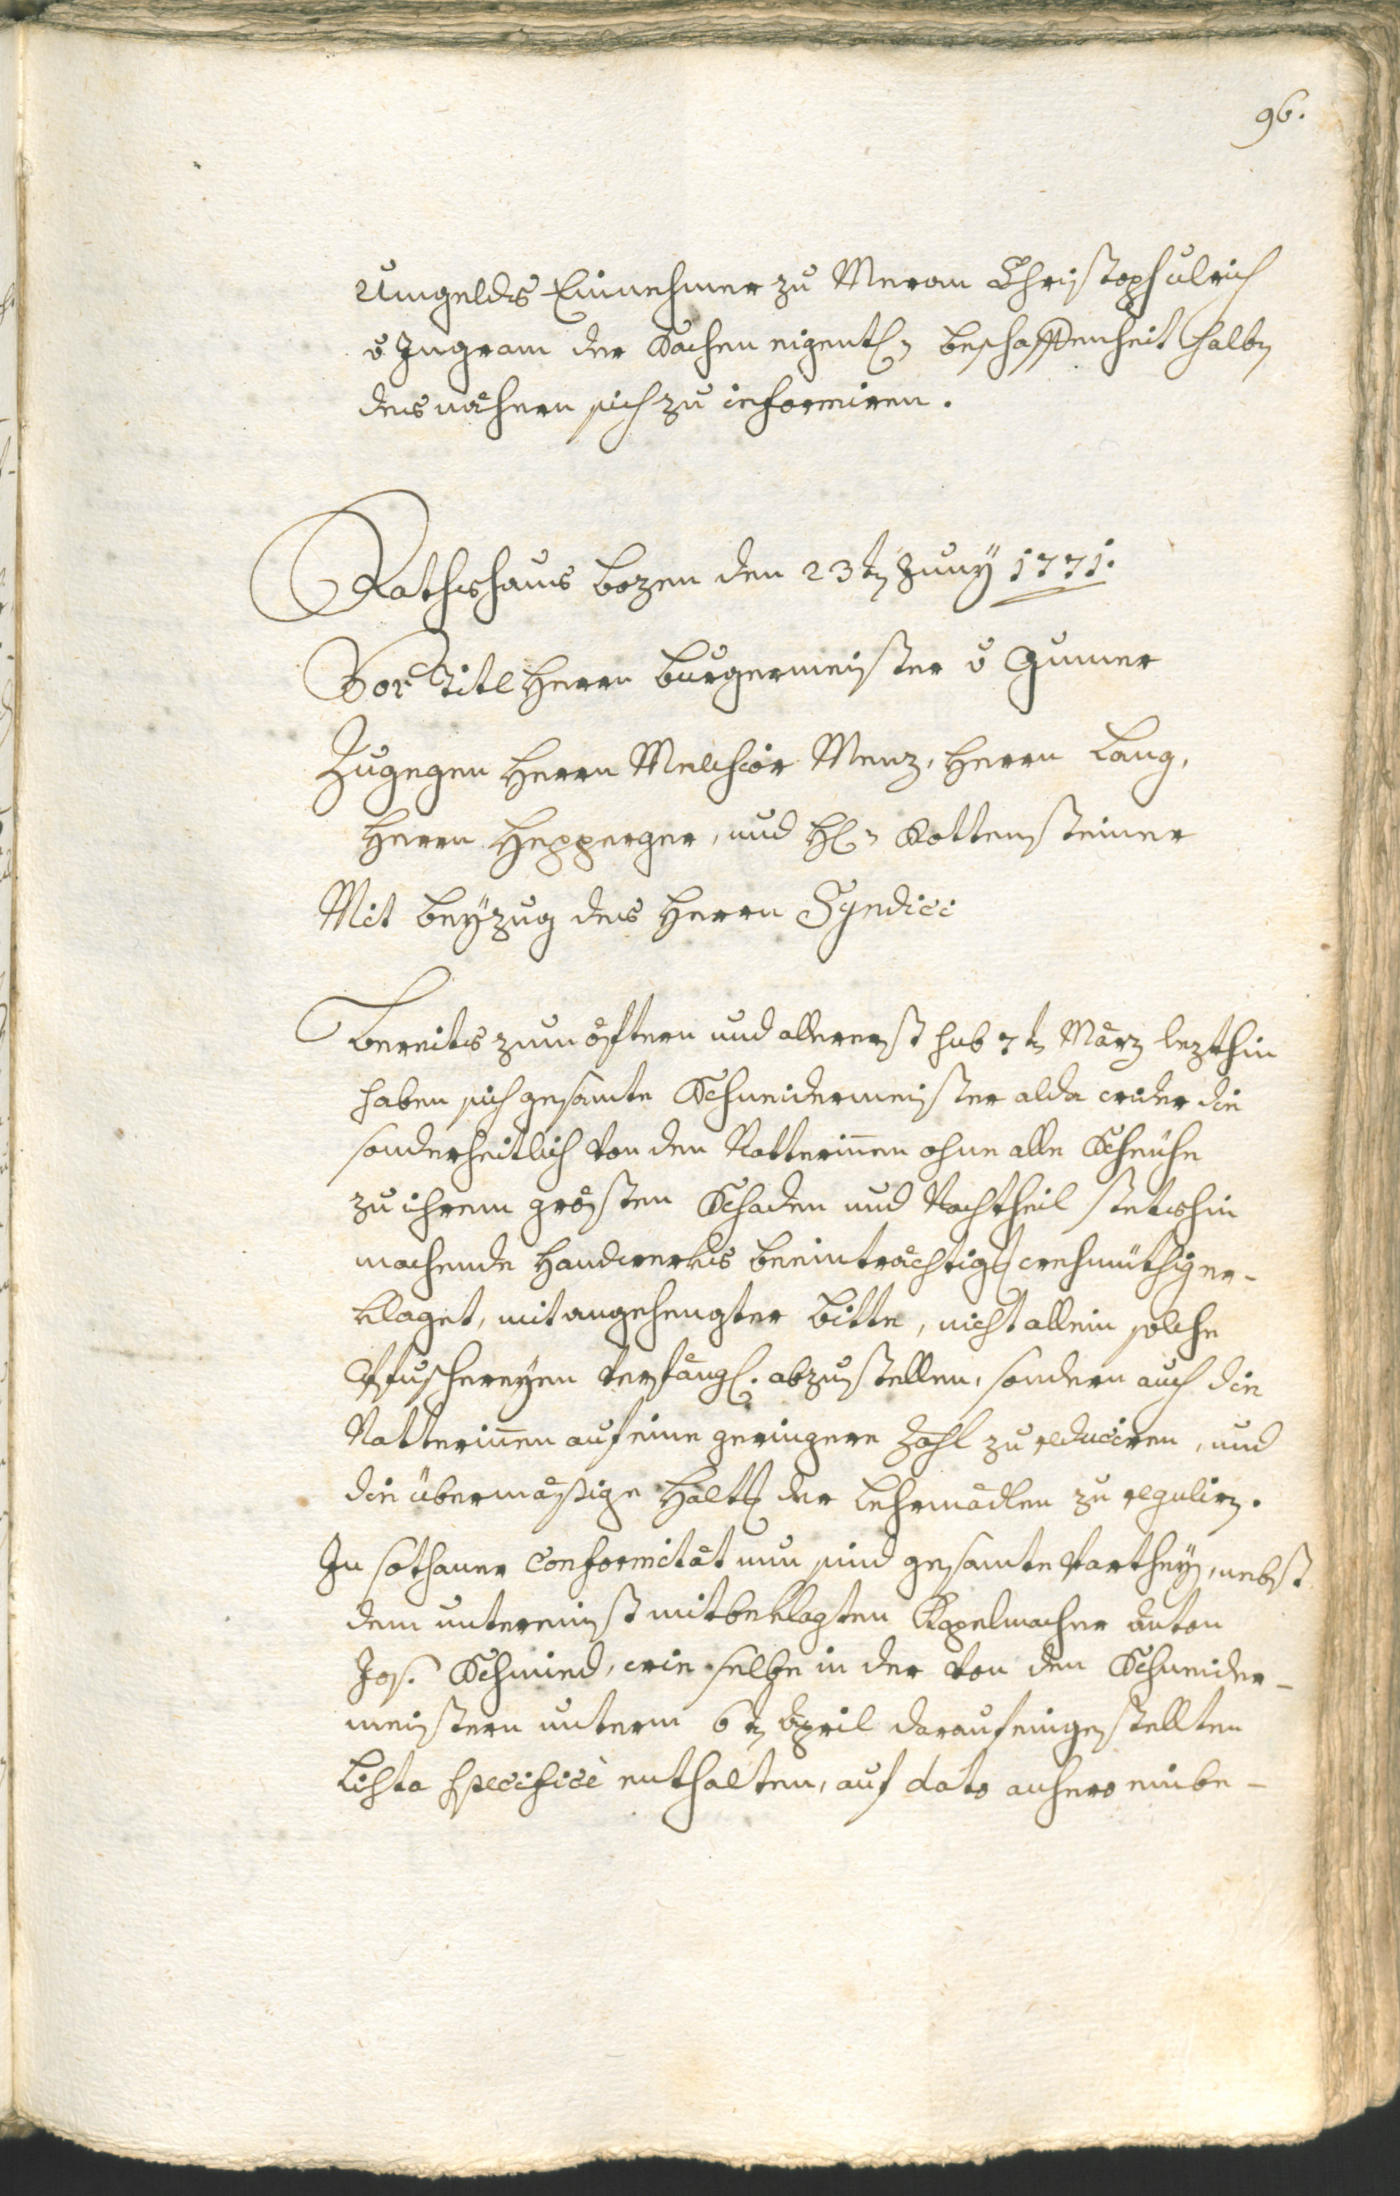 96.
Umgelds Einnehmer zu Meran Christoph Ulrich
v Ingram der Sachen eigentl: beschaffenheit halbn
des nähern sich zu informiren.
Rathshaus Bozen den 23tn Juny 1771.
Vor Titl Herrn Burgermeister v Gumer
Zugegen Herrn Melchior Menz, Herrn Lang,
Herrn Hepperger, und H: Kottensteiner
Mit beÿzug des Herrn Syndici
Bereits zum öftern und allererst sub 7tn März lezthin
haben sich gesamte Schneidermeister alda wider die
sonderheitlich von den Natterinen ohne alle Scheuhe
zu ihrem grösten Schaden und Nachtheil stetshin
machende Handwerks beeinträchtigg wehmüthig er-
klaget, mit angehengter bitte, nicht allein solche
Pfuschereyen verfängl. abzustellen, sondern auch die
Natterinen auf eine geringere Zahl zu reduciren, und
die übermäßige Haltg der Lehrmädlen zu regulirn.
In sothaner Conformität nun sind gesamte Partheyn, nebst
dem untereinst mitbeklagten Kapelmacher Anton
Jos. Schmied, wie selbe in der von den Schneider-
meistern unterm 6tn April darauf eingestellten
Lista specifice enthalten, auf dato anhero einbe-